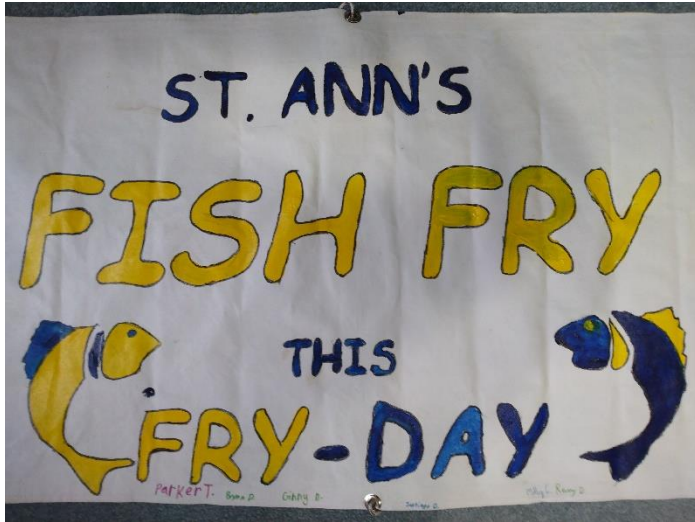 ST. ANN'S
FISH FRY
THIS
FRY-DAY
Parker T. Bryan D. Ginny D. Kenny D.